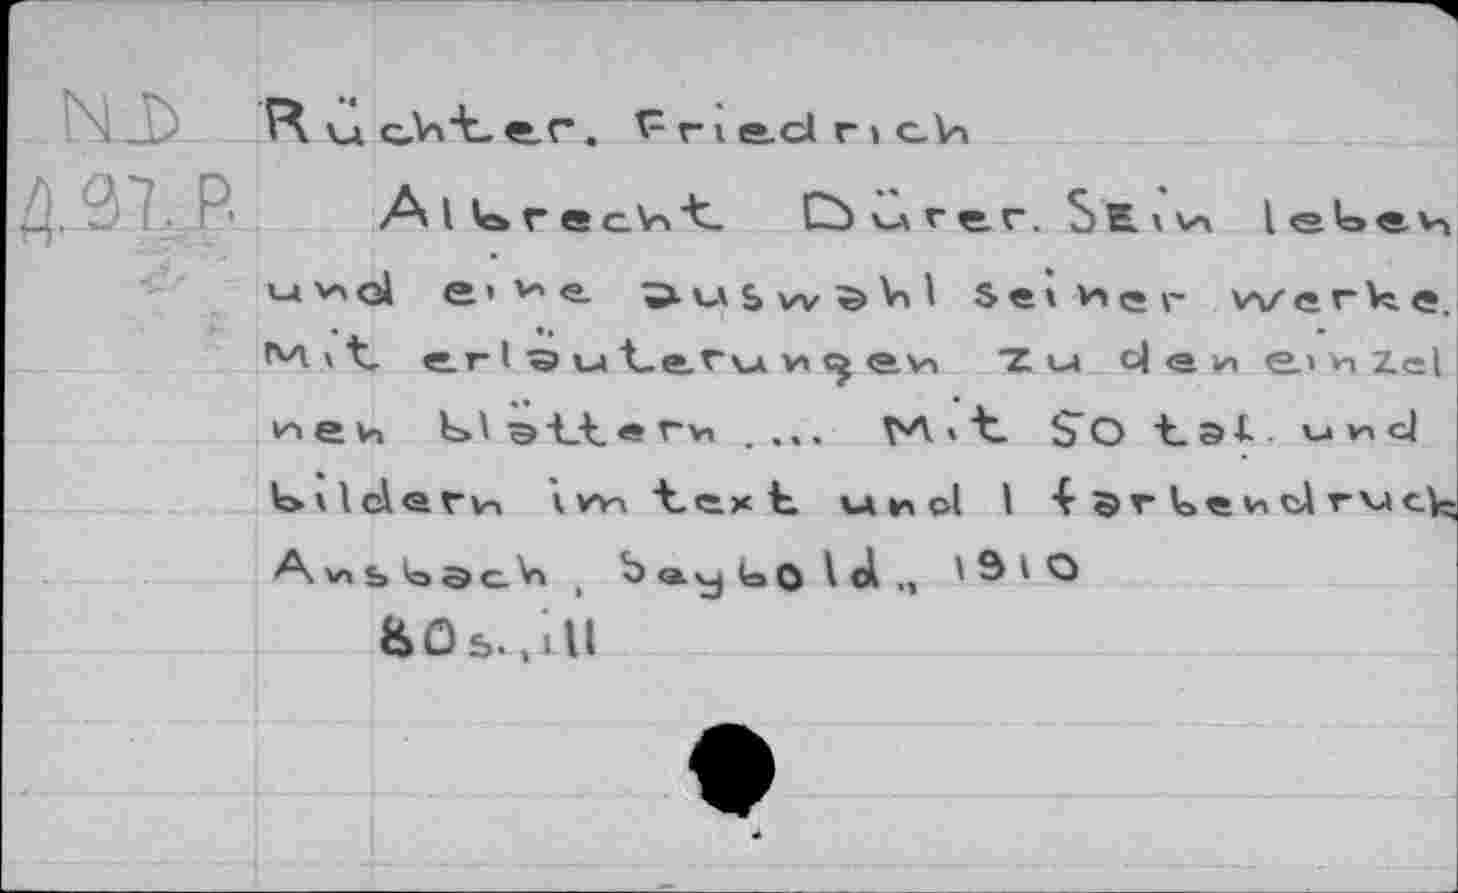 ND Rüchter. Friedrich
Д.97.P. Albrecht Dürer. SEin leben
und eine auswahl seiner werke.
Mit erläuterungen zu den einzel
nen blättern .... Mit 50 taf. und
bildern im text und 1 farbendruck
Ansbach, Seybold., 1910
80s.,ill